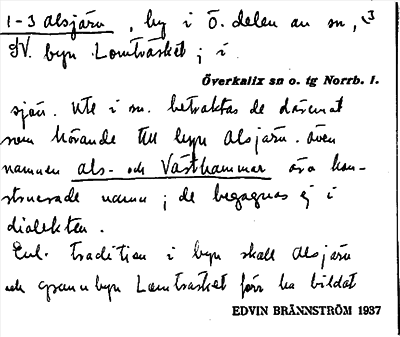 1-3 Alsjärv, by i ö. delen av sn,
SV. byn Lomträsket; i
Överkalix sn o. tg Norrb. l.
sjön. Ute i sn. betraktas de däremot
som hörande till byn Alsjärv. Även
namnen Als- och Västhammar äro kon-
struerade namn; de begagnas ej i
dialekten.
Enl. tradition i byn skall Alsjärv
och grannbyn Lomträsket förr ha bildat
EDVIN BRÄNNSTRÖM 1937